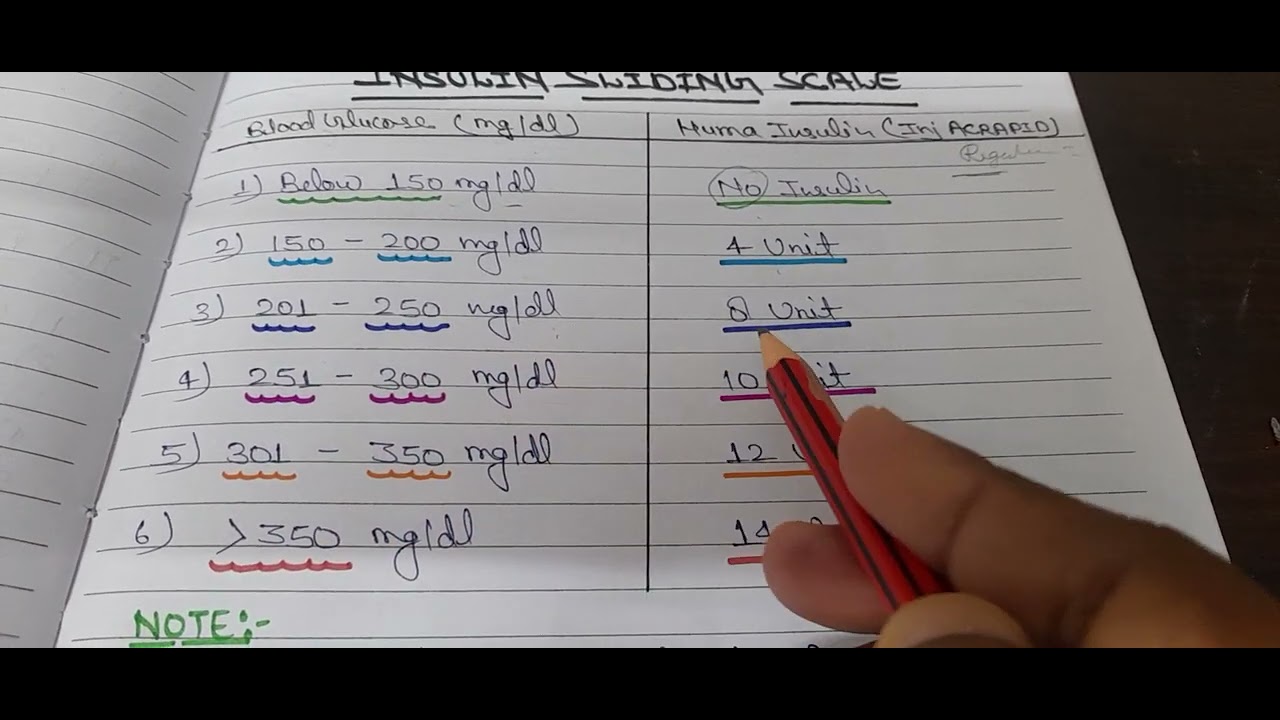 INSULIN SLIDING SCALE
Blood Glucose (mg/dl) Huma Insulin (Inj ACRAPID)
1) Below 150 mg/dl No Insulin
2) 150 - 200 mg/dl 4 Unit
3) 201 - 250 mg/dl 8 Unit
4) 251 - 300 mg/dl 10
5) 301 - 350 mg/dl 12
6) >350 mg/dl 14
NOTE:-